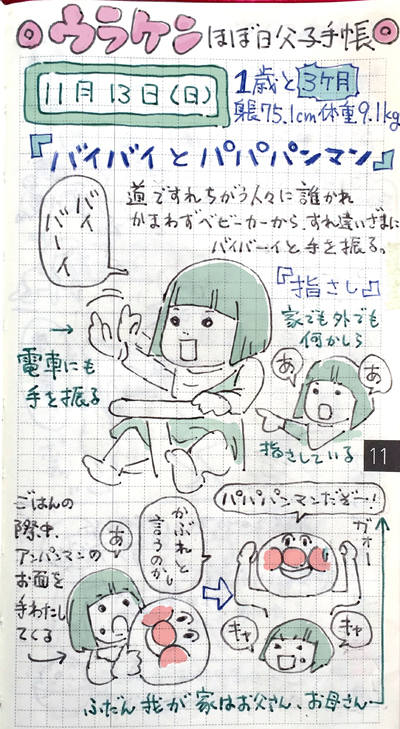 ウラケン ほぼ日父子手帳
11月13日(日)
1歳と3ケ月
身長75.1cm 体重9.1kg
『バイバイとパパパンマン』
バイ
バーイ
道ですれちがう人々に誰かれ
かまわずベビーカーから、すれ違いざまに
バイバーイと手を振る。
→
電車にも
手を振る
『指さし』
家でも外でも
何かしら
あ
あ
指さしている
11
ごはんの
際中、
アンパンマンの
お面を
手わたし
てくる
あ
かぶれと
言うのか。
パパパンマンだぞー!
ガオー
キャ
キャ
ふだん我が家はお父さん、お母さん